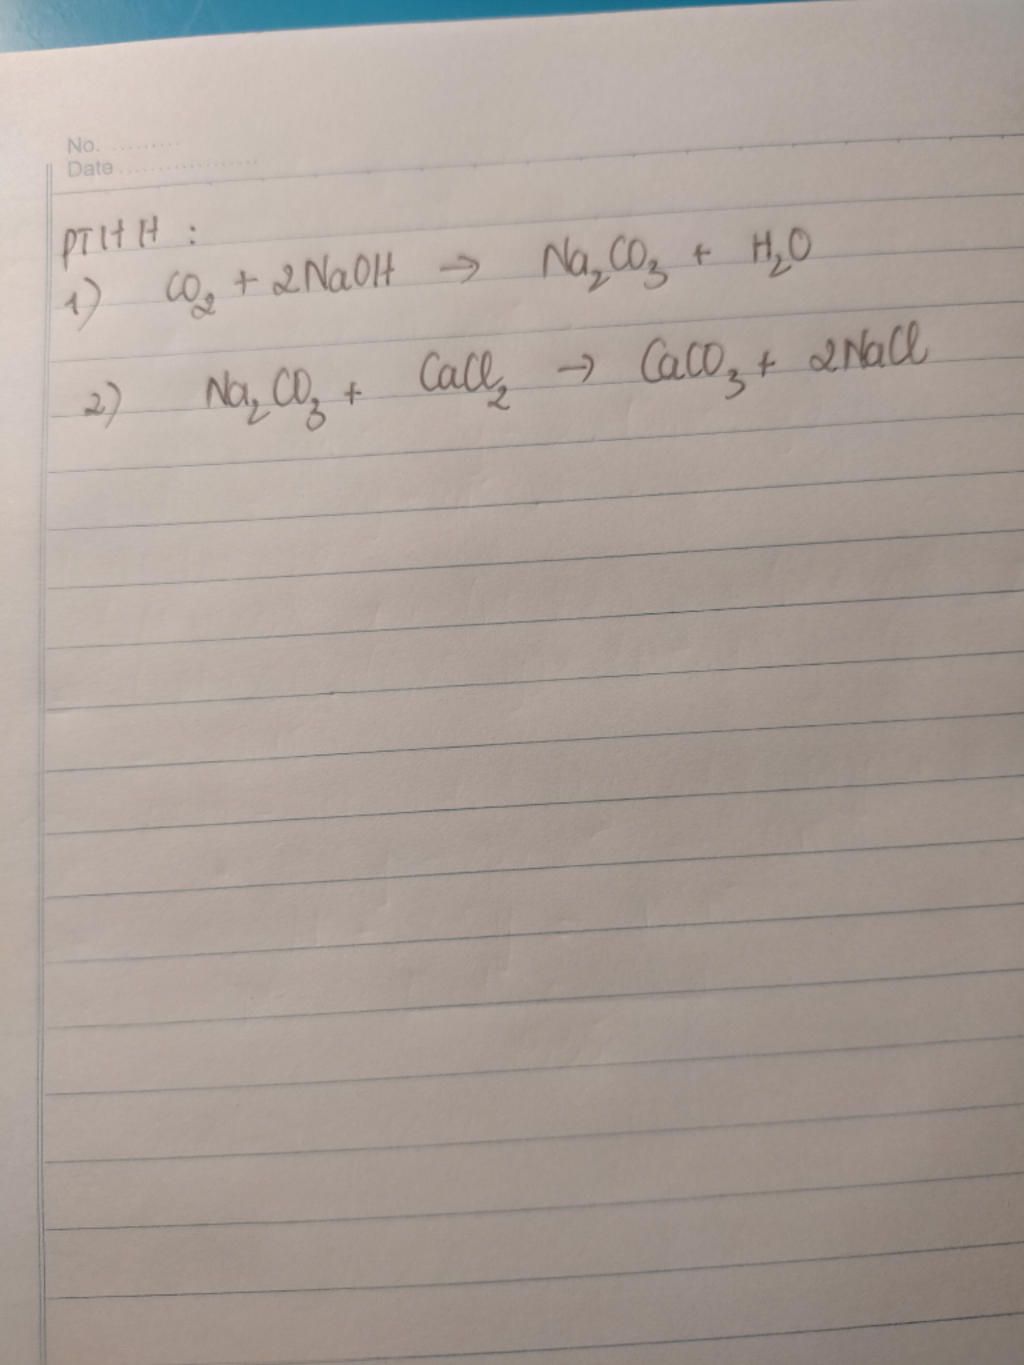 No. ..........
Date ..................
PTHH :
1) CO₂ + 2NaOH → Na₂CO₃ + H₂O
2) Na₂CO₃ + CaCl₂ → CaCO₃ + 2NaCl